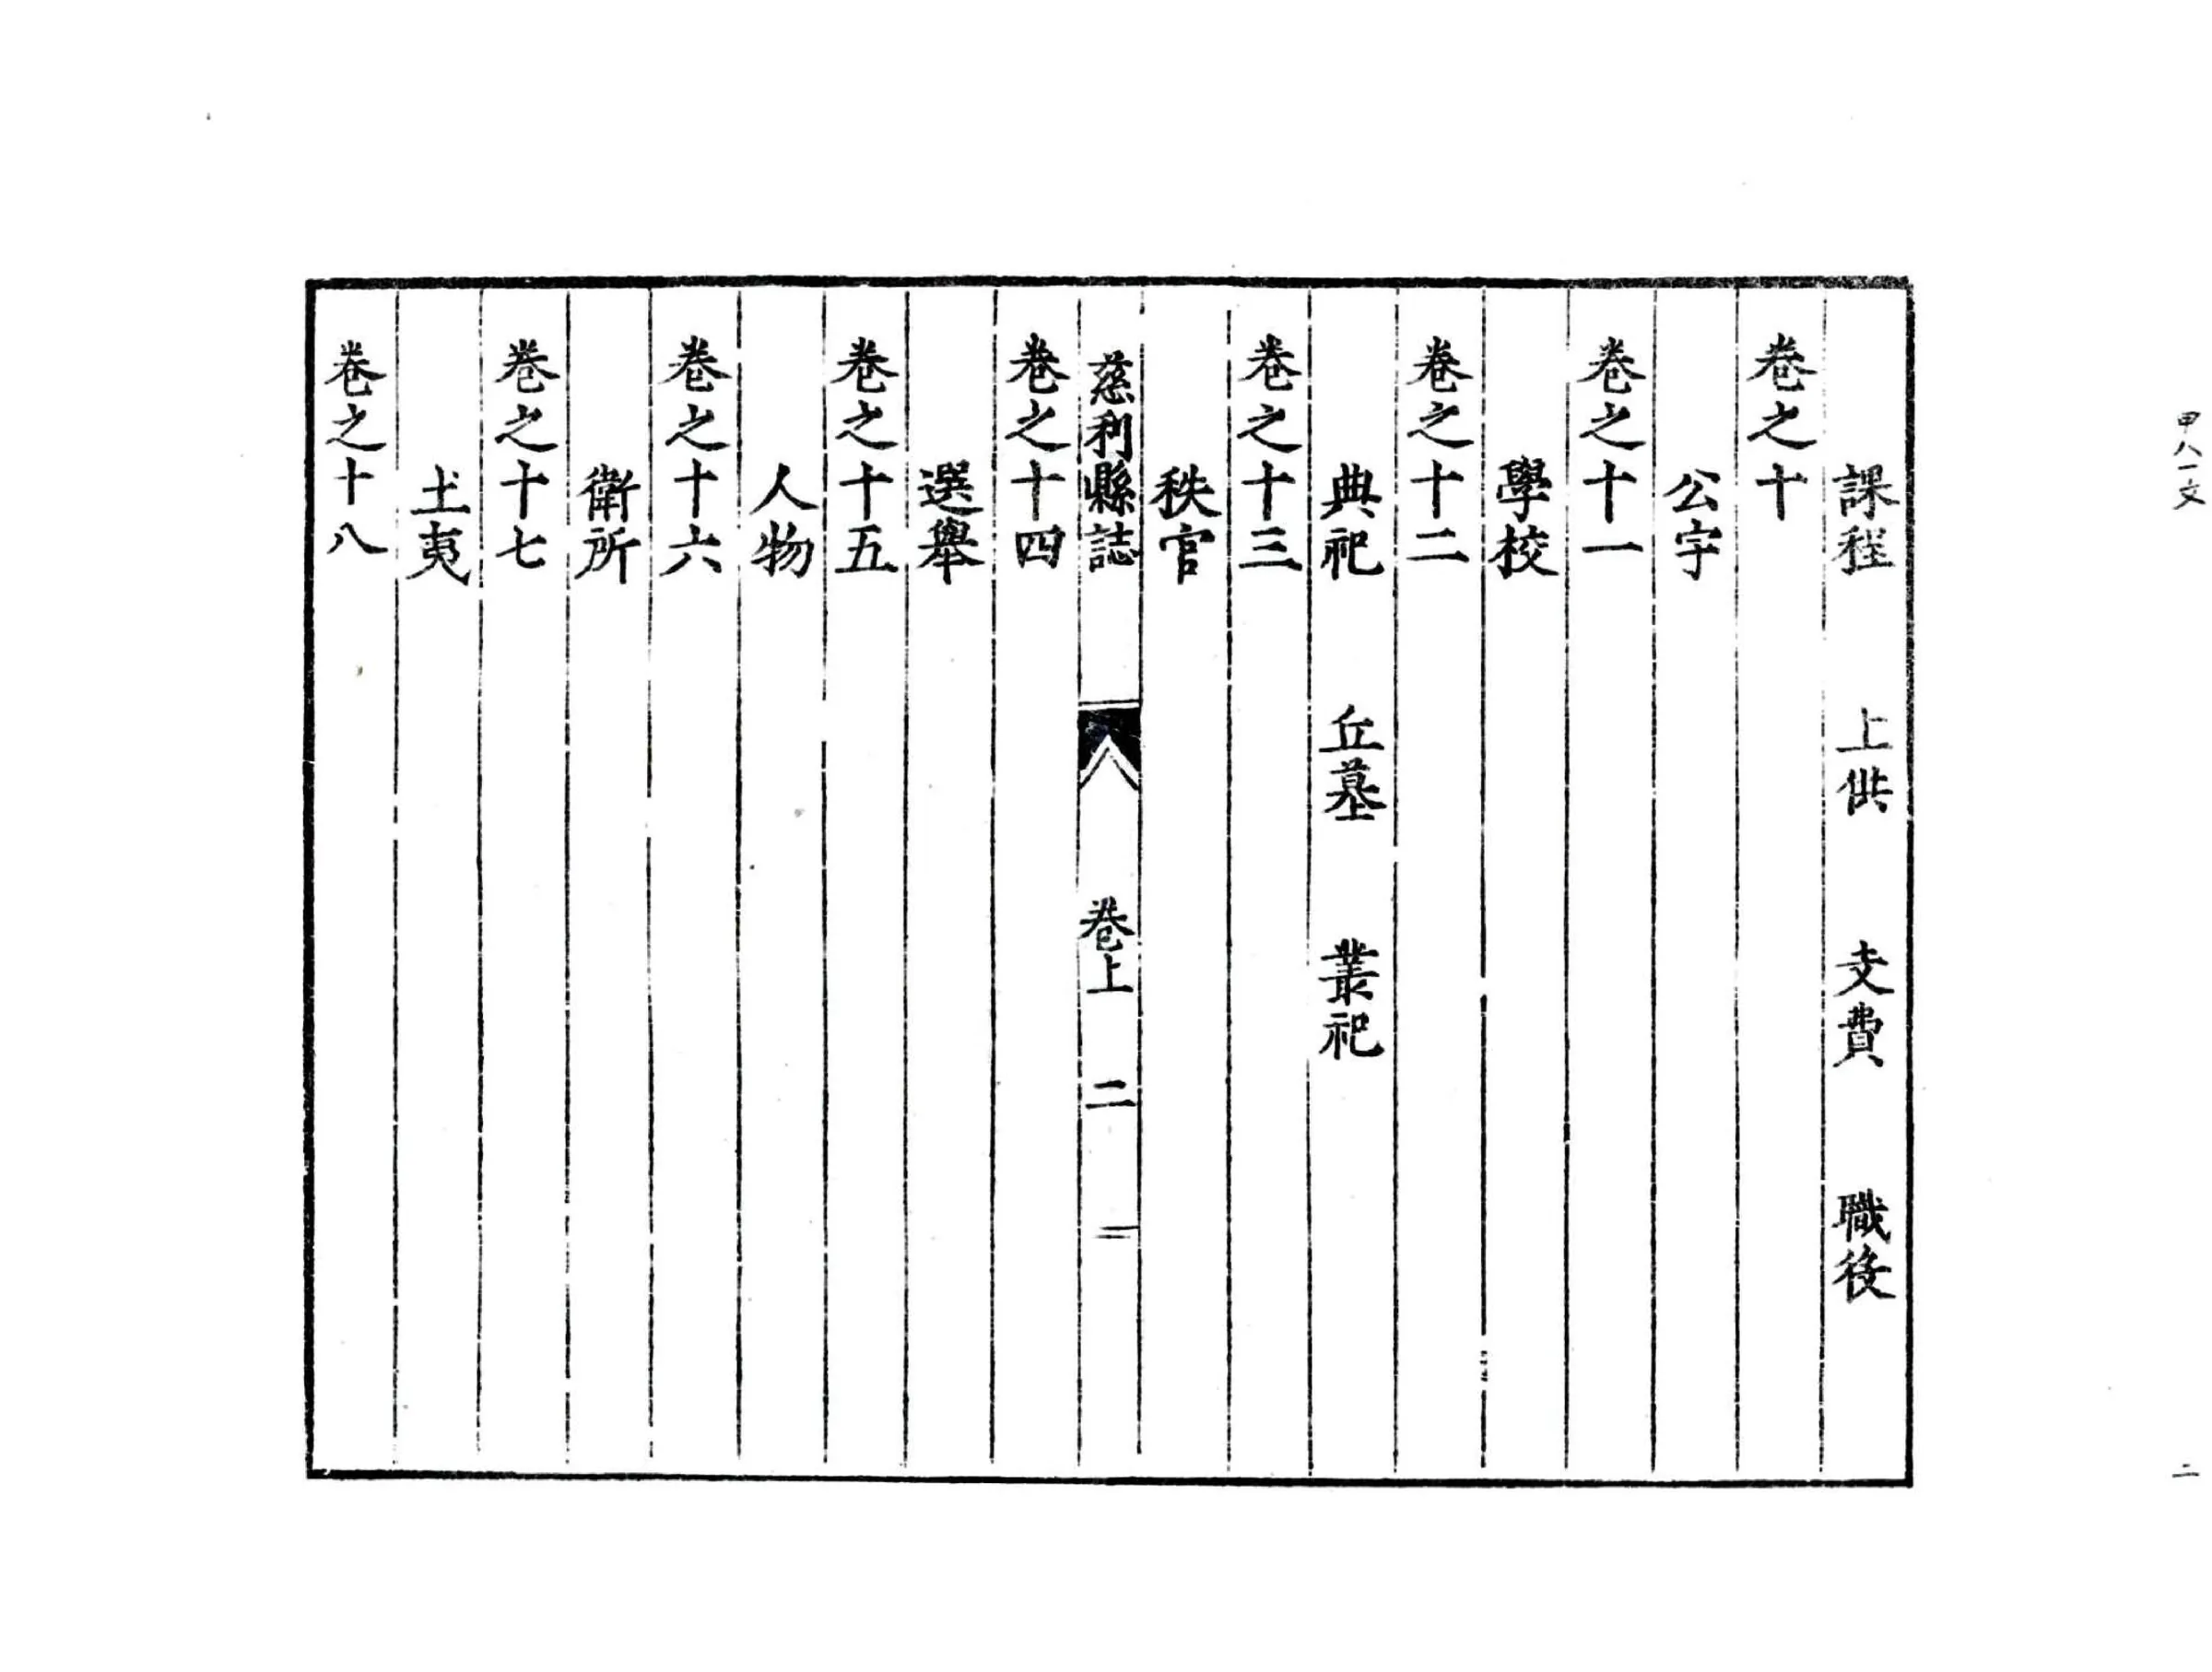 課程 上供 支費 職役
卷之十
公宇
卷之十一
學校
卷之十二
典祀 丘墓 叢祀
卷之十三
秩官
慈利縣誌 卷上 二
卷之十四
選舉
卷之十五
人物
卷之十六
衛所
卷之十七
土夷
卷之十八
二